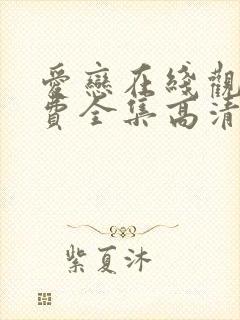 愛戀在綫觀
費全集高清
紫夏沐